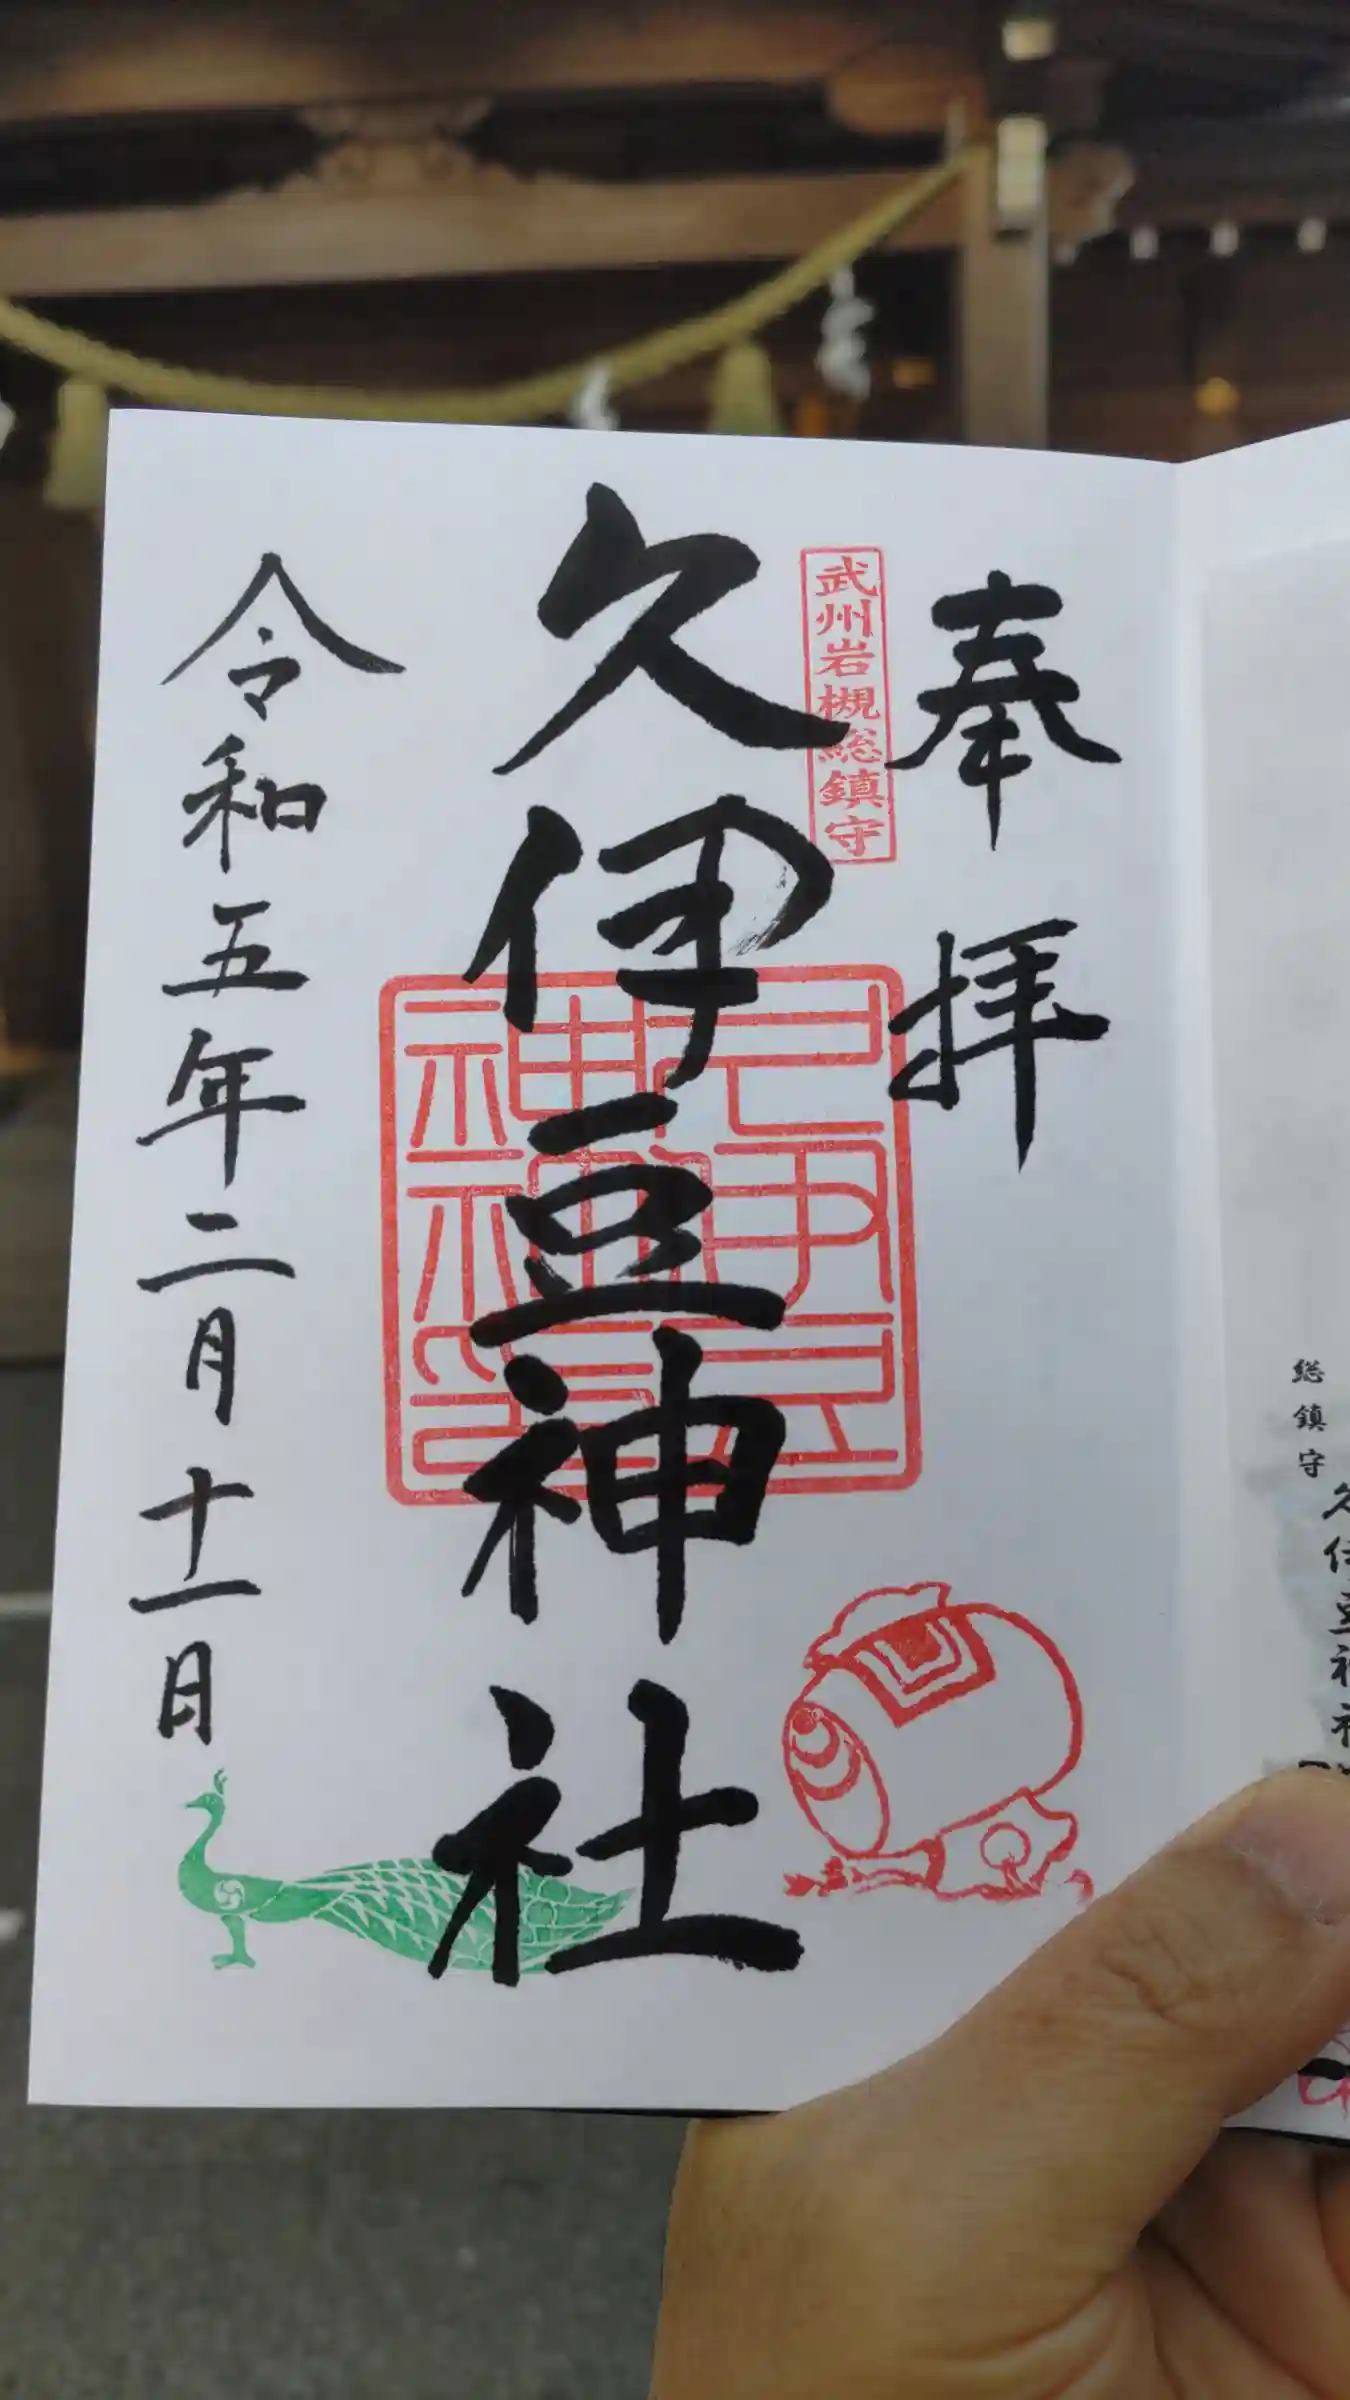 総鎮守
久伊豆神社
奉拝
武州岩槻総鎮守
久伊豆神社
久伊豆神社神印
令和五年二月十一日